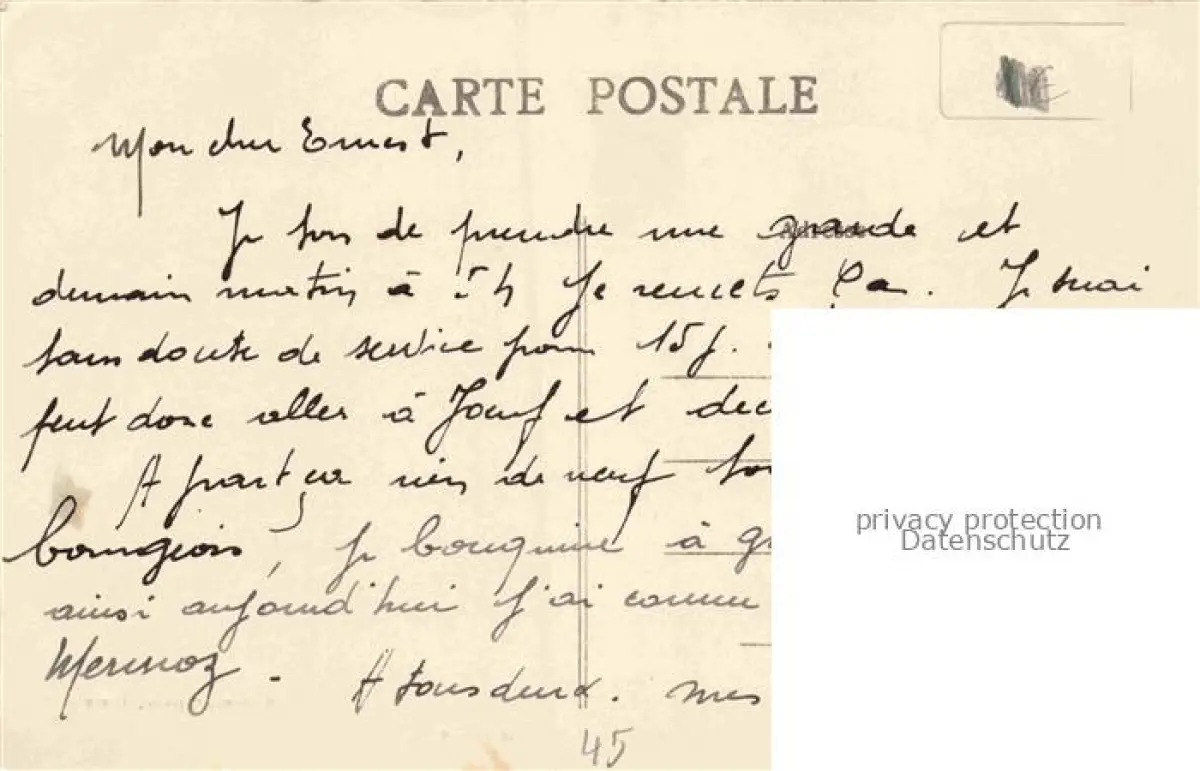 CARTE POSTALE
Mon cher Ernest,
Je sors de prendre une garde et
demain matin à 5 h je remets ça. Je serai
sans doute de service pour 15 j.
peut donc aller à Joeuf et
A part ça rien de neuf
bourgeois, je bouquine à
ainsi aujourd'hui j'ai connu
Mermoz. A tous deux. mes
45
privacy protection
Datenschutz